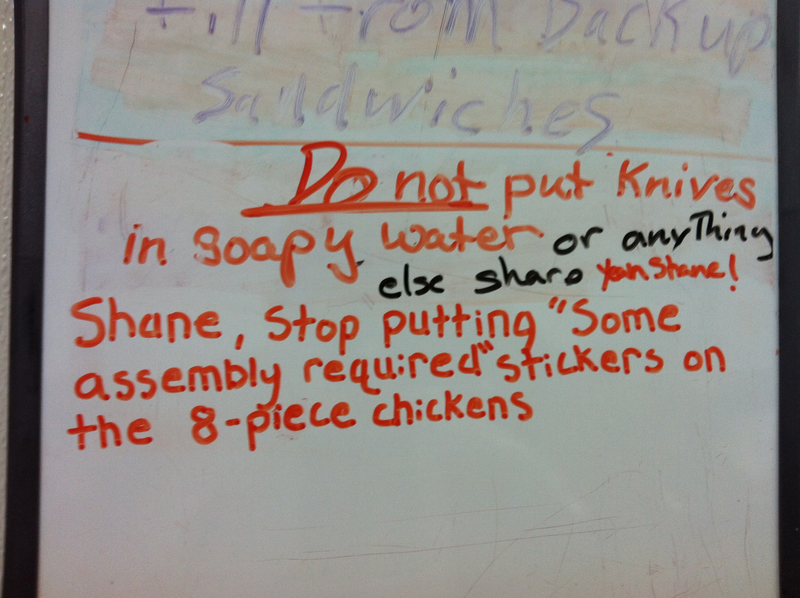 fill from backup
sandwiches
Do not put Knives
in soapy water or anyThing
else sharp Yeah Shane!
Shane, Stop putting "Some
assembly required" stickers on
the 8-piece chickens